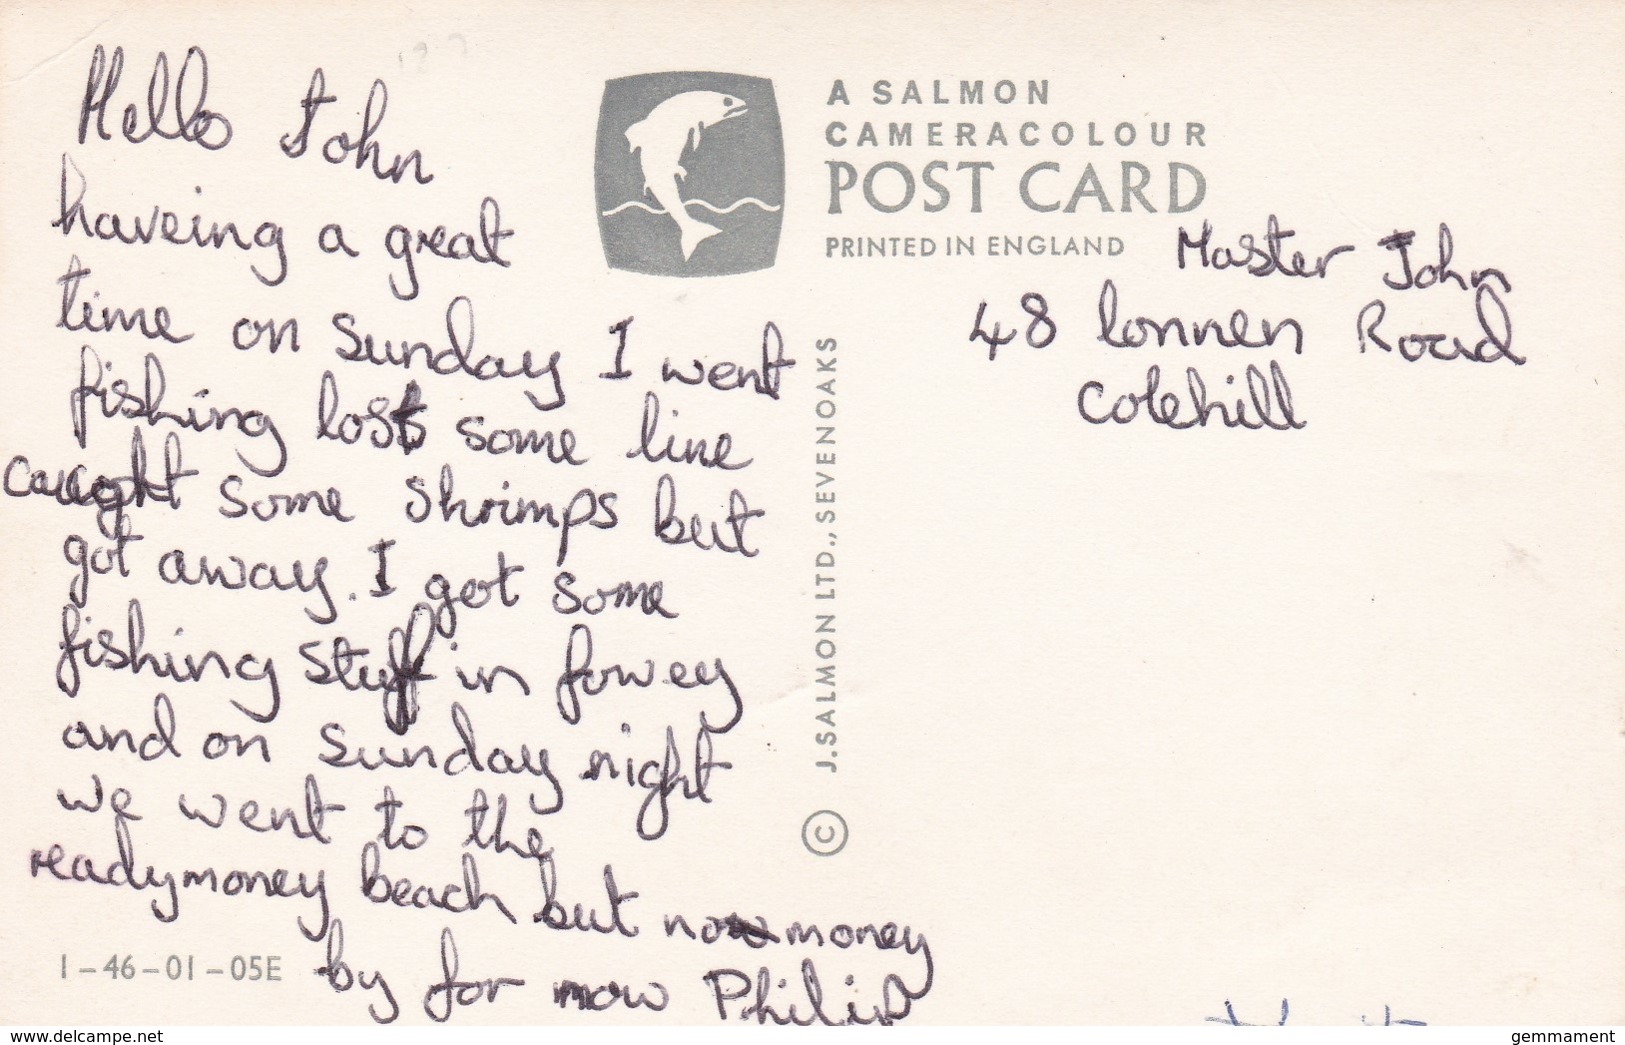 Hello John
haveing a great
time on Sunday I went
fishing lost some line
caught some shrimps but
got away. I got some
fishing stuff in fowey
and on sunday night
we went to the
readymoney beach but no money
by for now Philip
1-46-01-05E
A SALMON
CAMERACOLOUR
POST CARD
PRINTED IN ENGLAND
© J. SALMON LTD., SEVENOAKS
Master John
48 lonnen Road
Colehill
www.delcampe.net
gemmament